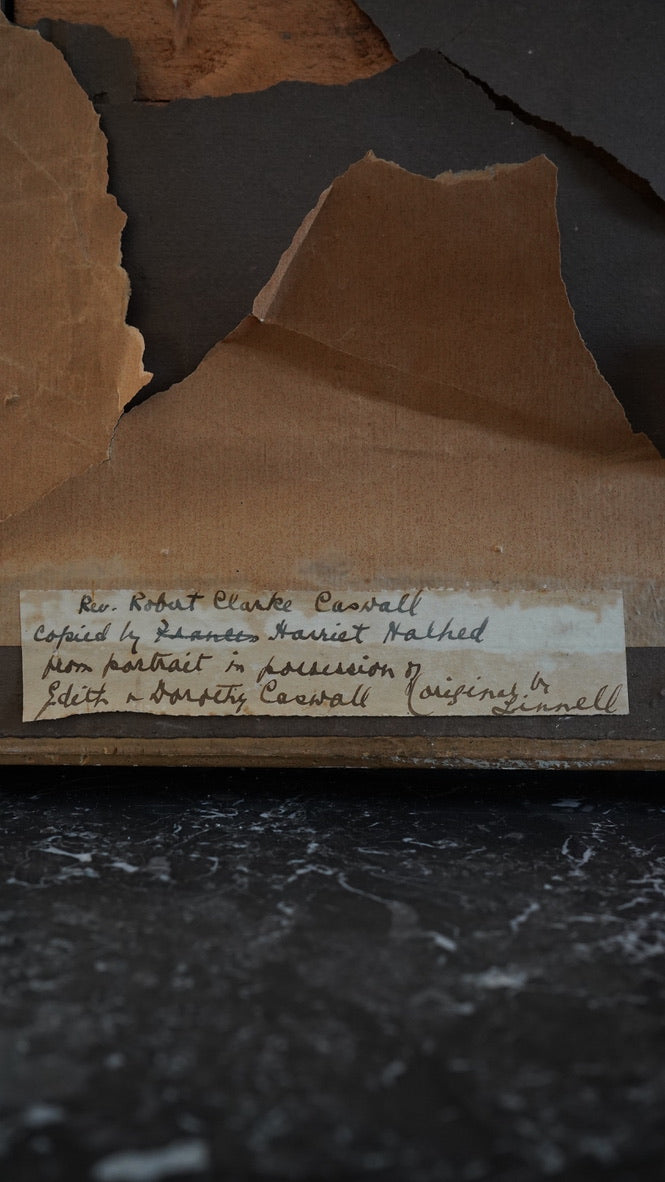 Rev. Robert Clarke Caswall
copied by Frances Harriet Halhed
from portrait in possession of
Edith & Dorothy Caswall (original by
Linnell